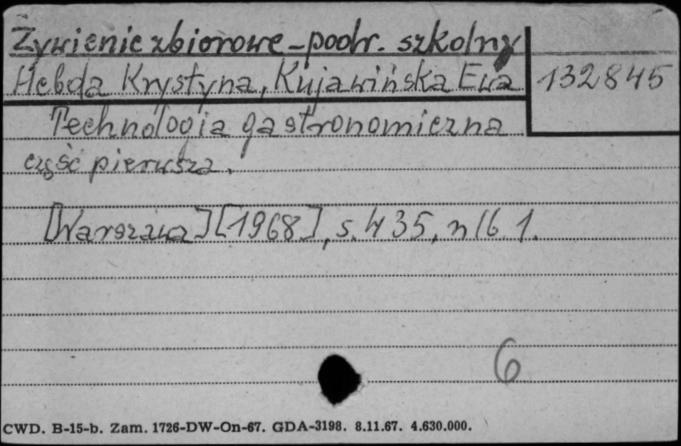 Żywienie zbiorowe - podr. szkolny
Hebda Krystyna, Kujawińska Ewa 132845
Technologia gastronomiczna
część pierwsza.
[Warszawa] [1968], s. 435, nlb 1.
6
CWD. B-15-b. Zam. 1726-DW-On-67. GDA-3198. 8.11.67. 4.630.000.